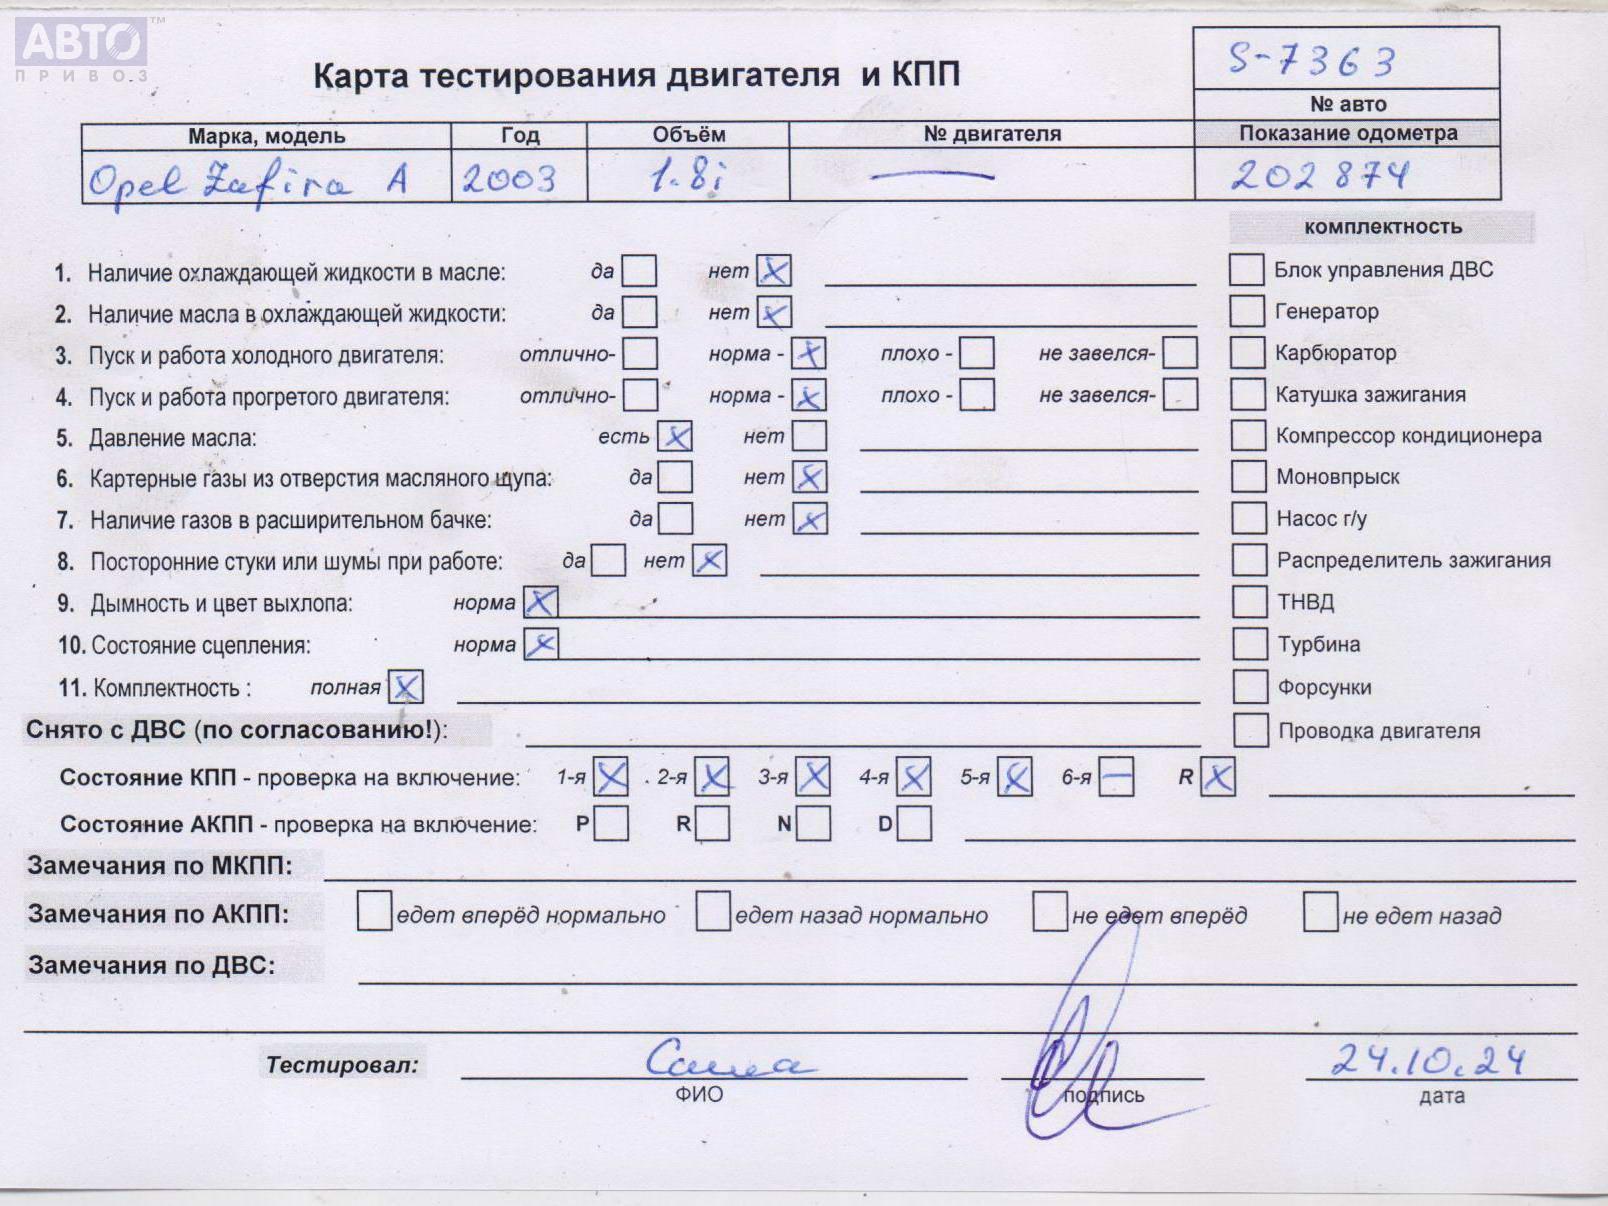 АВТО™
ПРИВОЗ
Карта тестирования двигателя и КПП
S-7363
№ авто
Марка, модель Год Объём № двигателя Показание одометра
Opel Zafira A 2003 1.8i — 202 874
комплектность
1. Наличие охлаждающей жидкости в масле: да нет X Блок управления ДВС
2. Наличие масла в охлаждающей жидкости: да нет X Генератор
3. Пуск и работа холодного двигателя: отлично- норма - X плохо - не завелся- Карбюратор
4. Пуск и работа прогретого двигателя: отлично- норма - X плохо - не завелся- Катушка зажигания
5. Давление масла: есть X нет Компрессор кондиционера
6. Картерные газы из отверстия масляного щупа: да нет X Моновпрыск
7. Наличие газов в расширительном бачке: да нет X Насос г/у
8. Посторонние стуки или шумы при работе: да нет X Распределитель зажигания
9. Дымность и цвет выхлопа: норма X ТНВД
10. Состояние сцепления: норма X Турбина
11. Комплектность : полная X Форсунки
Снято с ДВС (по согласованию!): Проводка двигателя
Состояние КПП - проверка на включение: 1-я X 2-я X 3-я X 4-я X 5-я X 6-я — R X
Состояние АКПП - проверка на включение: P R N D
Замечания по МКПП:
Замечания по АКПП: едет вперёд нормально едет назад нормально не едет вперёд не едет назад
Замечания по ДВС:
Тестировал: Саша 24.10.24
ФИО подпись дата